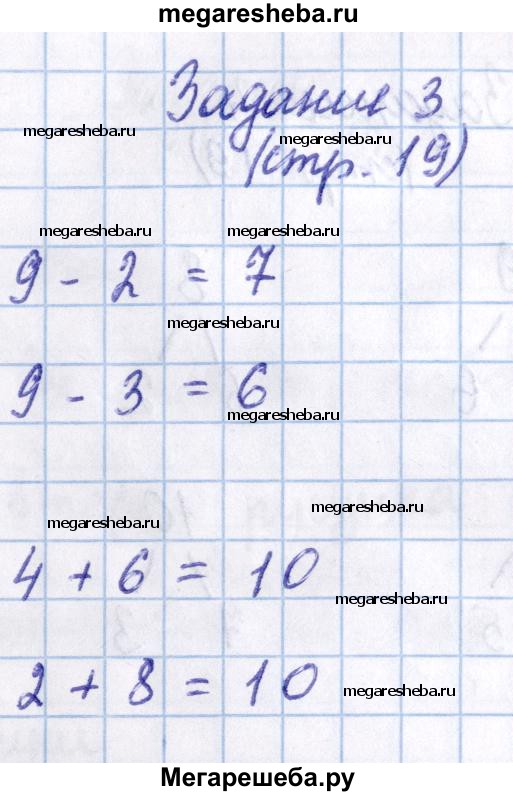 megaresheba.ru
Задание 3
megaresheba.ru
megaresheba.ru
(стр. 19)
megaresheba.ru megaresheba.ru
9 - 2 = 7
megaresheba.ru
9 - 3 = 6
megaresheba.ru
megaresheba.ru
megaresheba.ru
4 + 6 = 10
megaresheba.ru
2 + 8 = 10
megaresheba.ru
Мегарешеба.ру